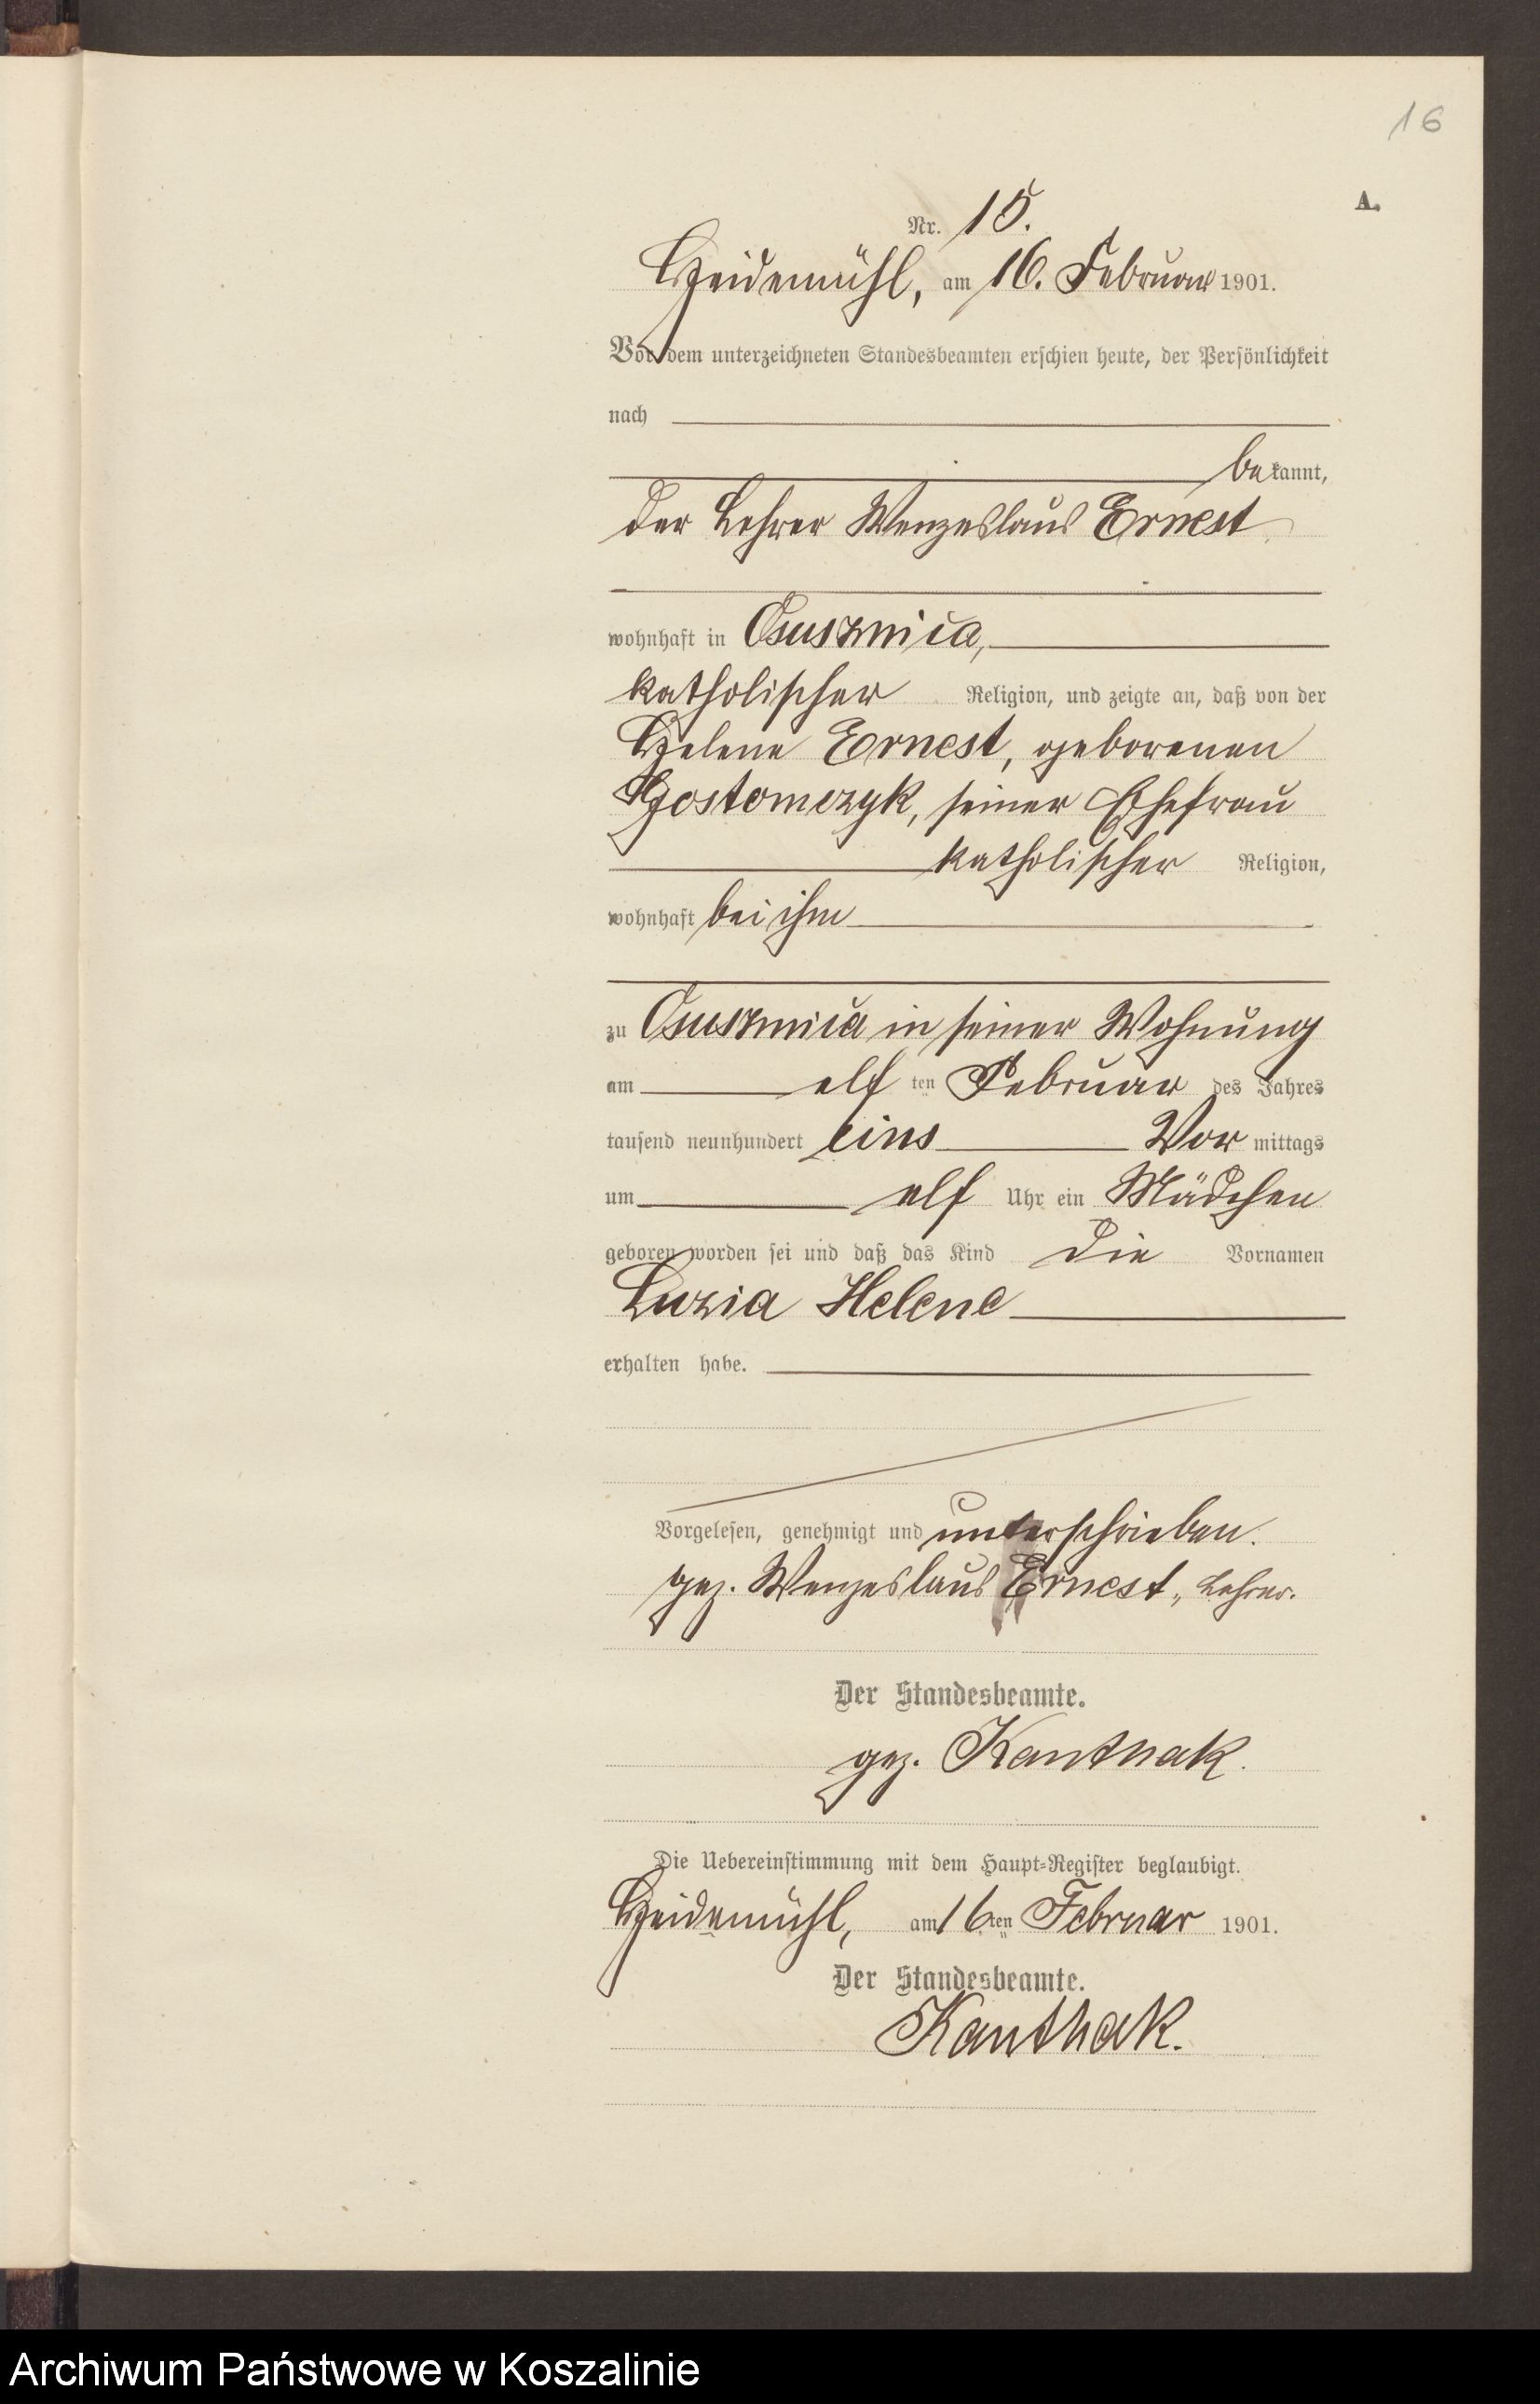 16
A.
Nr. 15.
Heidemühl, am 16. Februar 1901.
Vor dem unterzeichneten Standesbeamten erschien heute, der Persönlichkeit
nach
bekannt,
der Lehrer Wenzeslaus Ernest
wohnhaft in Osusznica,
katholischer Religion, und zeigte an, daß von der
Helene Ernest, geborenen
Gostomczyk, seiner Ehefrau
katholischer Religion,
wohnhaft bei ihm
zu Osusznica in seiner Wohnung
am elf ten Februar des Jahres
tausend neunhundert eins Vor mittags
um elf Uhr ein Mädchen
geboren worden sei und daß das Kind die Vornamen
Luzia Helene
erhalten habe.
Vorgelesen, genehmigt und unterschrieben.
gez. Wenzeslaus Ernest, Lehrer.
Der Standesbeamte.
gez. Kanthak.
Die Uebereinstimmung mit dem Haupt-Register beglaubigt.
Heidemühl, am 16ten Februar 1901.
Der Standesbeamte.
Kanthak.
Archiwum Państwowe w Koszalinie